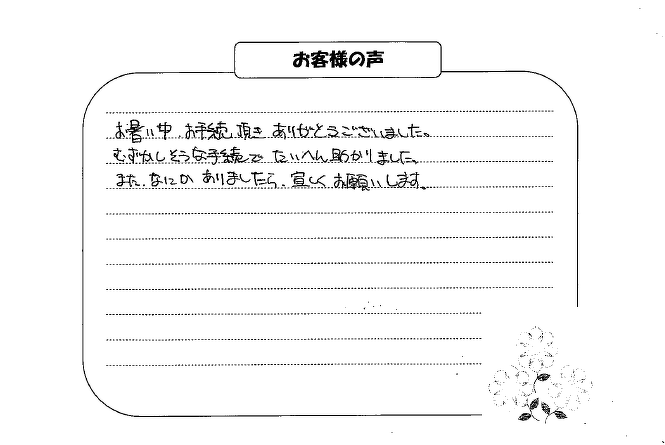 お客様の声
お暑い中、お手続、頂き ありがとうございました。
むずかしそうな手続で たいへん助かりました。
また、なにか ありましたら、宜しく お願いします。